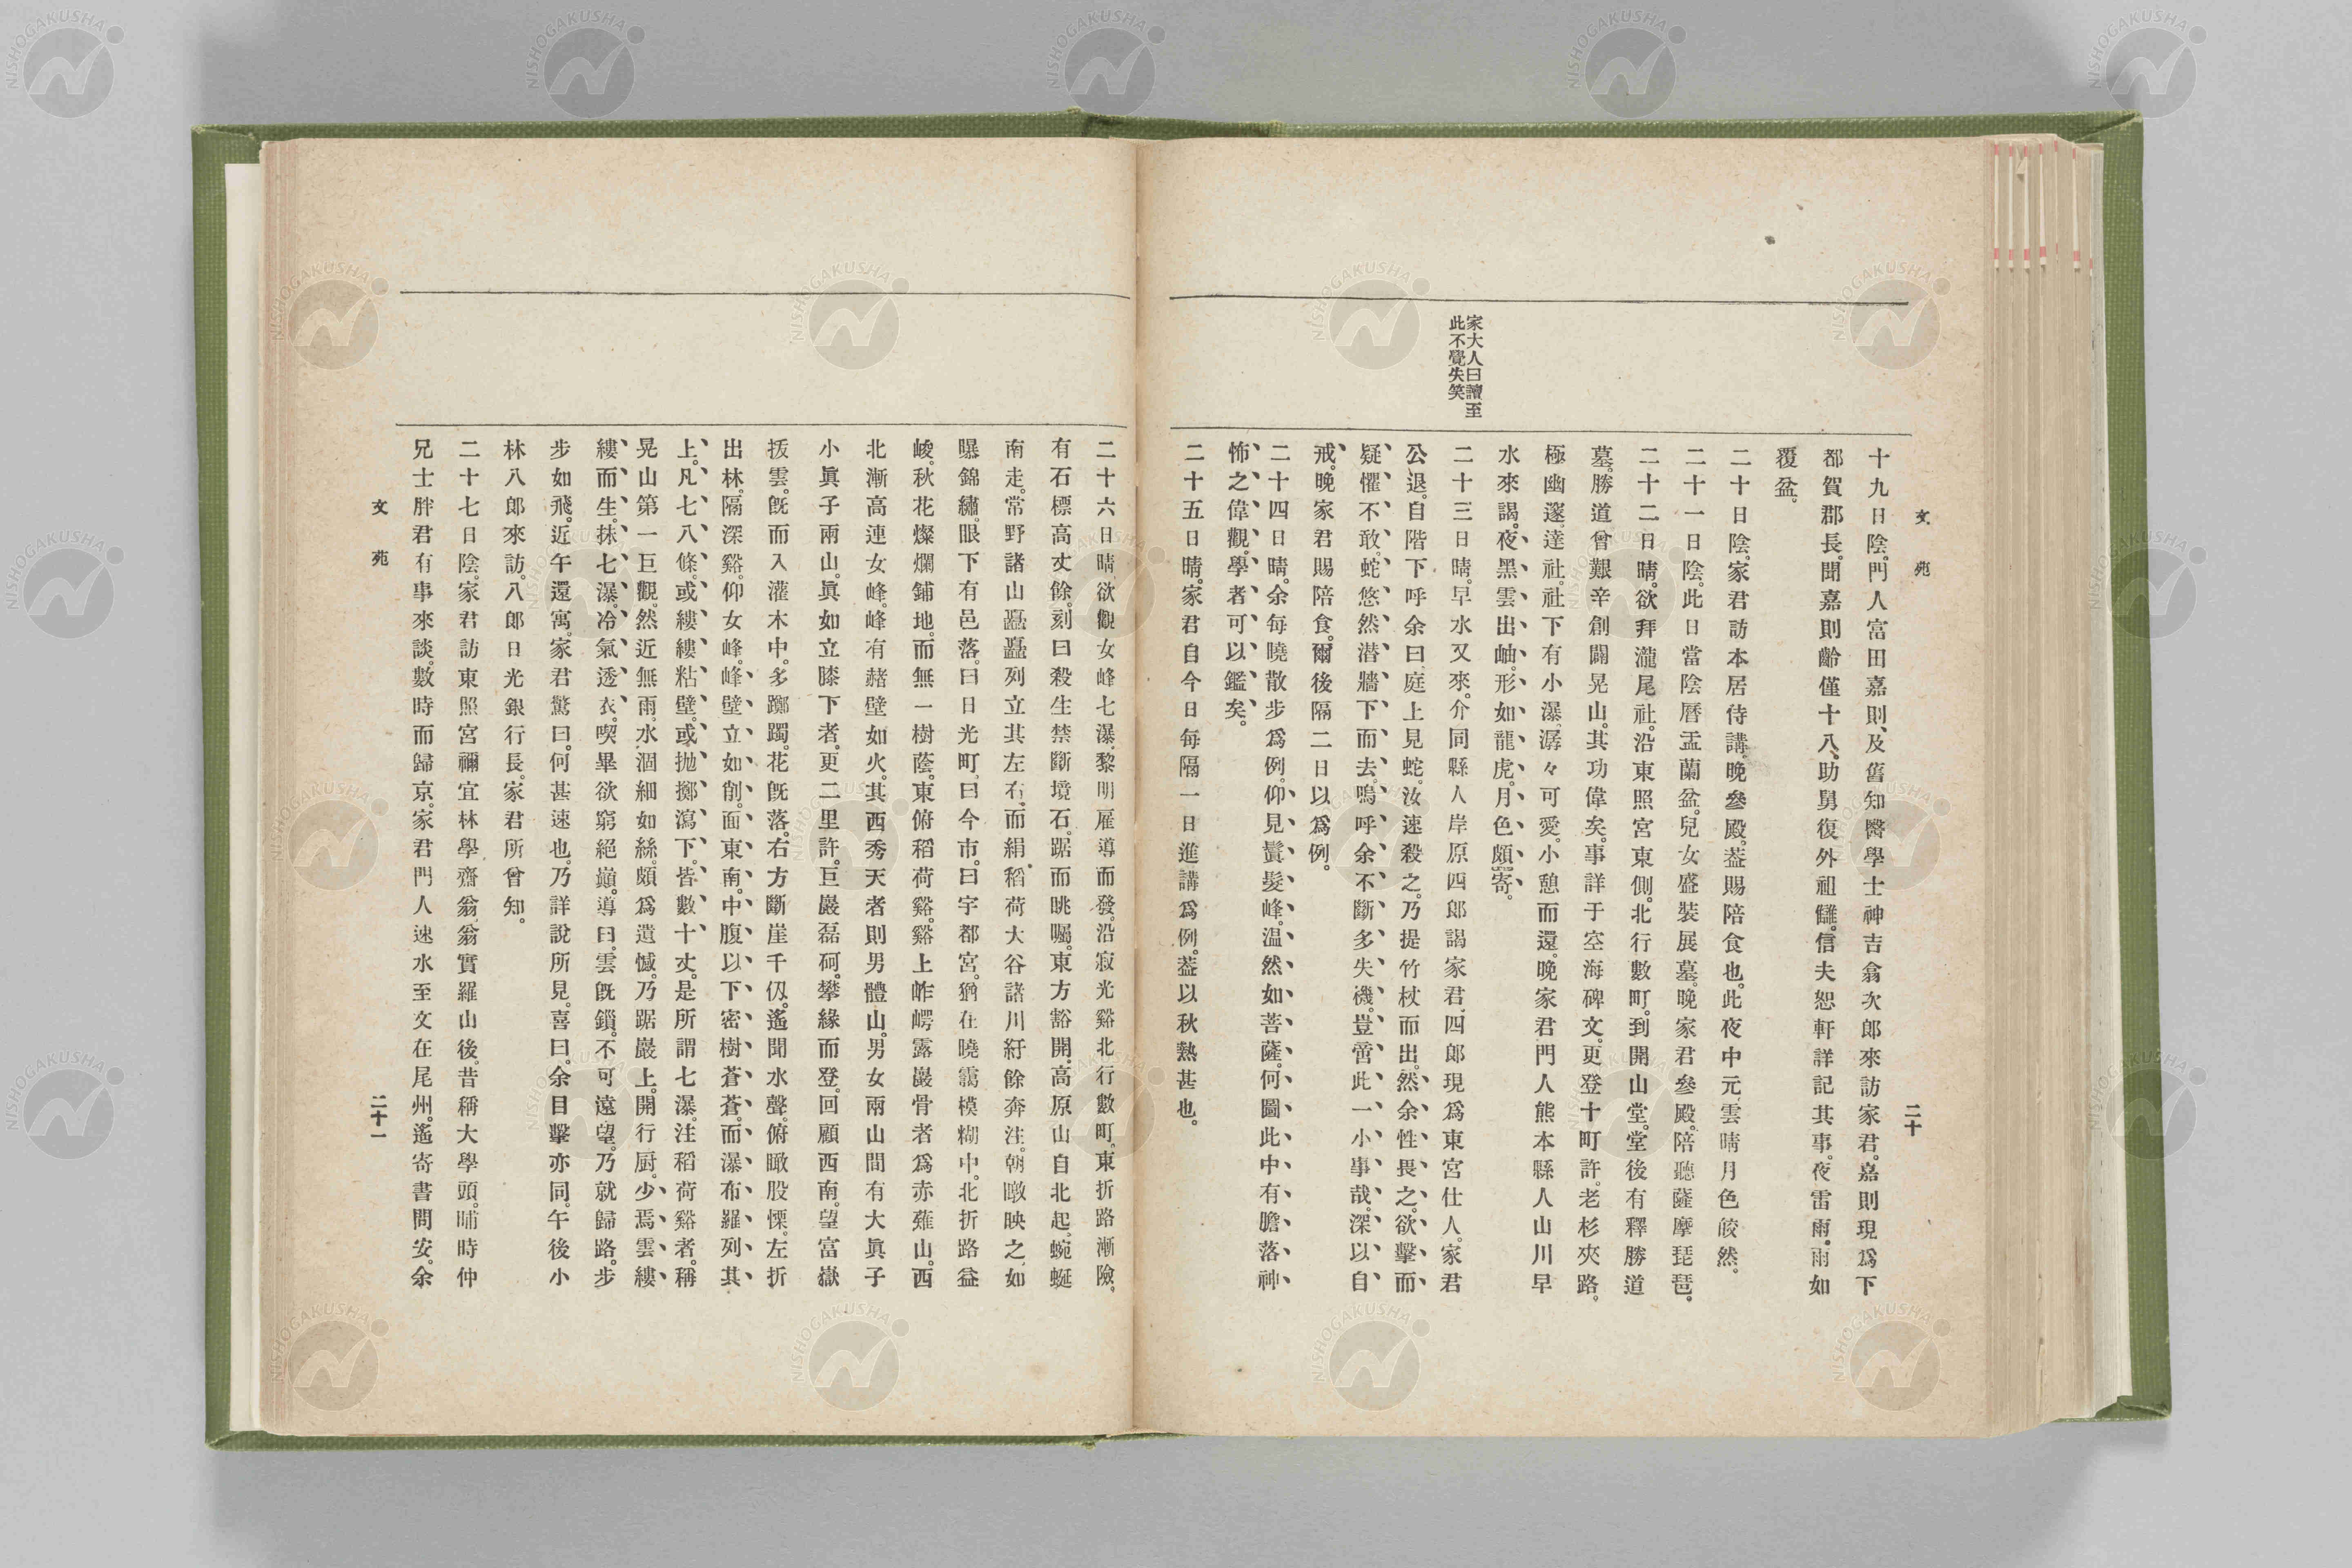 文苑
二十
家大人曰讀至
此不覺失笑
十九日陰。門人富田嘉則、及舊知醫學士神吉翕次郎來訪家君。嘉則現爲下
都賀郡長。聞嘉則齡僅十八、助舅復外祖讎。信夫恕軒詳記其事。夜雷雨。雨如
覆盆。
二十日陰。家君訪本居侍講。晚參殿。葢賜陪食也。此夜中元、雲晴月色皎然。
二十一日陰。此日當陰曆盂蘭盆。兒女盛裝展墓。晚家君參殿。陪聽薩摩琵琶。
二十二日晴。欲拜瀧尾社。沿東照宮東側。北行數町。到開山堂。堂後有釋勝道
墓。勝道曾艱辛創闢晃山。其功偉矣。事詳于空海碑文。更登十町許。老杉夾路。
極幽邃。達社。社下有小瀑、潺々可愛。小憩而還。晚家君門人熊本縣人山川早
水來謁。夜黑雲出岫。形如龍虎。月色頗奇。
二十三日晴。早水又來。介同縣人岸原四郎謁家君。四郎現爲東宮仕人。家君
公退。自階下呼余曰、庭上見蛇。汝速殺之。乃提竹杖而出。然余性畏之。欲擊而
疑懼不敢。蛇悠然潛牆下而去。嗚呼余不斷多失機。豈啻此一小事哉。深以自
戒。晚家君賜陪食。爾後隔二日以爲例。
二十四日晴。余每曉散步爲例。仰見鬟髮峰。温然如菩薩。何圖此中有膽落神
怖之偉觀。學者可以鑑矣。
二十五日晴。家君自今日每隔一日進講爲例。葢以秋熱甚也。
二十六日晴。欲觀女峰七瀑。黎明雇導而發。沿寂光谿北行數町。東折路漸險。
有石標高丈餘。刻曰殺生禁斷境石。踞而眺矚。東方豁開。高原山自北起。蜿蜒
南走。常野諸山矗矗列立其左右。而絹稻荷大谷諸川紆餘奔注。朝暾映之、如
曝錦繡。眼下有邑落。曰日光町、曰今市。曰宇都宮。猶在曉靄模糊中。北折路益
峻。秋花燦爛鋪地。而無一樹蔭。東俯稻荷谿。谿上岞崿露巖骨者爲赤薙山。西
北漸高連女峰。峰有赭壁如火。其西秀天者則男體山。男女兩山間有大眞子
小眞子兩山。眞如立膝下者。更二里許。巨巖磊砢。攀緣而登。回顧西南。望富嶽
拔雲。旣而入灌木中。多躑躅。花旣落。右方斷崖千仭。遙聞水聲。俯瞰股慄。左折
出林。隔深谿。仰女峰。峰壁立如削。面東南。中腹以下密樹蒼蒼。而瀑布羅列其
上。凡七八條。或縷縷粘壁。或抛擲瀉下。皆數十丈。是所謂七瀑。注稻荷谿者。稱
晃山第一巨觀。然近無雨。水涸細如絲。頗爲遺憾。乃踞巖上。開行厨。少焉雲縷
縷而生。抹七瀑。冷氣透衣。喫畢欲窮絕巓。導曰。雲旣鎖。不可遠望。乃就歸路。步
步如飛。近午還寓。家君驚曰。何甚速也。乃詳說所見。喜曰。余目擊亦同。午後小
林八郎來訪。八郎日光銀行長。家君所曾知。
二十七日陰。家君訪東照宮禰宜林學齋翁、翁實羅山後。昔稱大學頭。晡時仲
兄士胖君有事來談。數時而歸京。家君門人速水至文在尾州。遙寄書問安。余
文苑
二十一